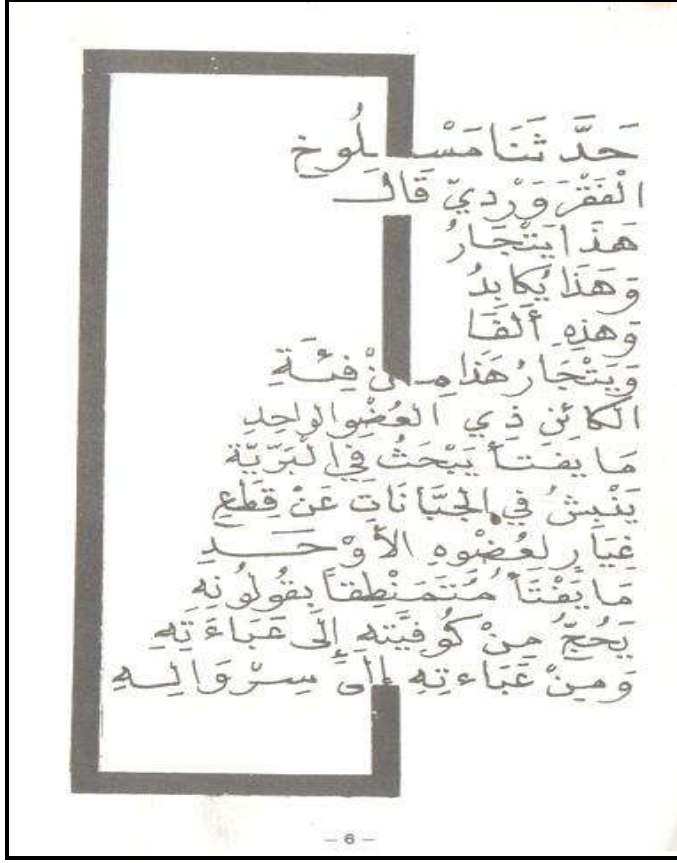 حَدَّ ثَنَا مَسْلُوخ
الْفَقْرَ وَرْدِيّ قَالَ
هَذَا يَتْجَارُ
وَهَذَا يُكَابِدُ
وَهذِهِ أَلْفَا
وَيَتْجَارُ هَذَا مِنْ فِئَةِ
الكَائنِ ذِي العُضْوِ الواحِدِ
مَا يَفْتَأُ يَبْحَثُ فِي الْبَرِّيَّة
يَنْبِشُ فِي الجَبَّانَاتِ عَنْ قِطَعِ
غِيَارٍ لِعُضْوِهِ الأَوْحَدِ
مَا يَفْتَأُ مُتَمَنْطِقاً بِقُولُونِهِ
يَحُجُّ مِنْ كُوفِيَّتِهِ إِلَى عَبَاءَتِهِ
وَمِنْ عَبَاءتِهِ إِلَى سِرْوَالِهِ
– 6 –